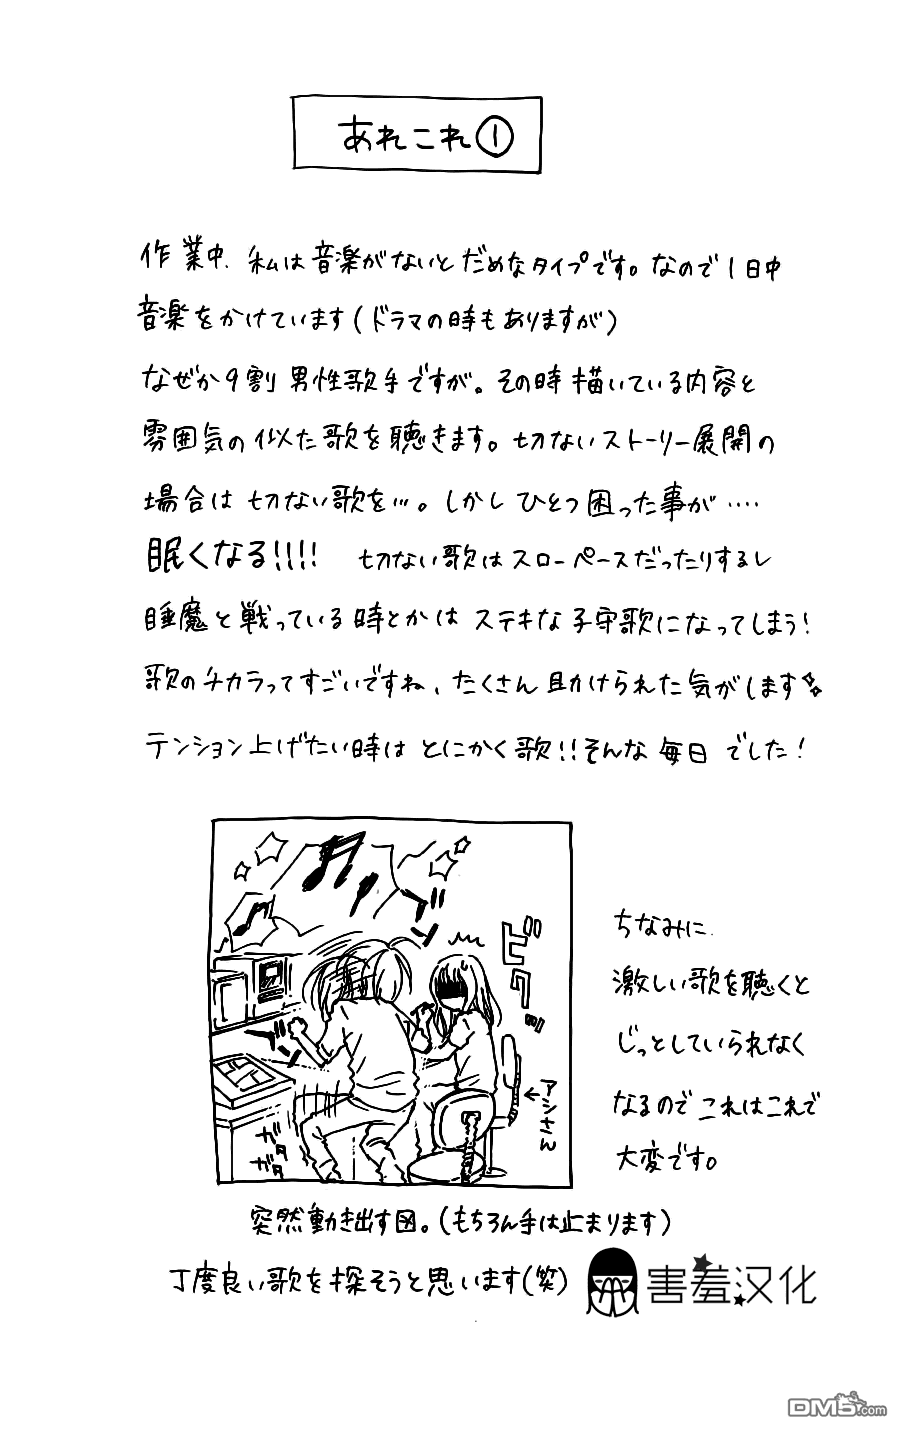 あれこれ①
作業中、私は音楽がないとだめなタイプです。なので1日中
音楽をかけています(ドラマの時もありますが)
なぜか9割男性歌手ですが。その時描いている内容と
雰囲気の似た歌を聴きます。切ないストーリー展開の
場合は切ない歌を…。しかしひとつ困った事が‥‥
眠くなる!!!! 切ない歌はスローペースだったりするし
睡魔と戦っている時とかはステキな子守歌になってしまう!
歌のチカラってすごいですね、たくさん助けられた気がします
テンション上げたい時はとにかく歌!!そんな毎日でした!
ブン
ビクッ
ブン
ガタ
ガタ
←アシさん
ちなみに
激しい歌を聴くと
じっとしていられなく
なるのでこれはこれで
大変です。
突然動き出す図。(もちろん手は止まります)
丁度良い歌を探そうと思います(笑)
害羞汉化
DM5.com